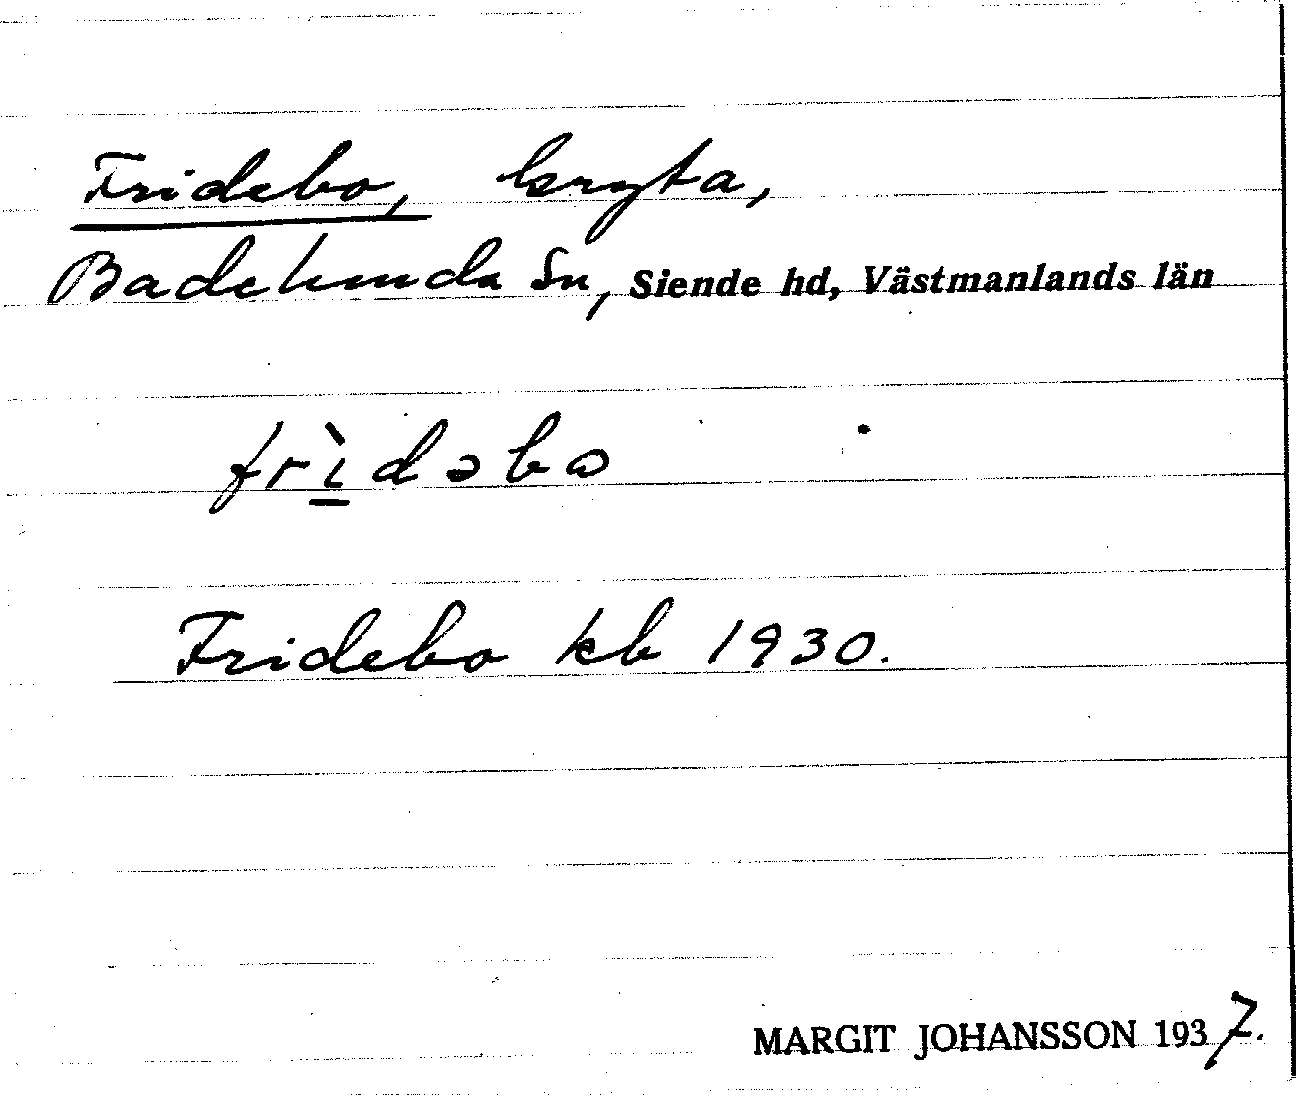 Fridebo, bryta,
Badelunda Sn, Siende hd, Västmanlands län
frìdəbω
Fridebo kb 1930.
MARGIT JOHANSSON 1937.